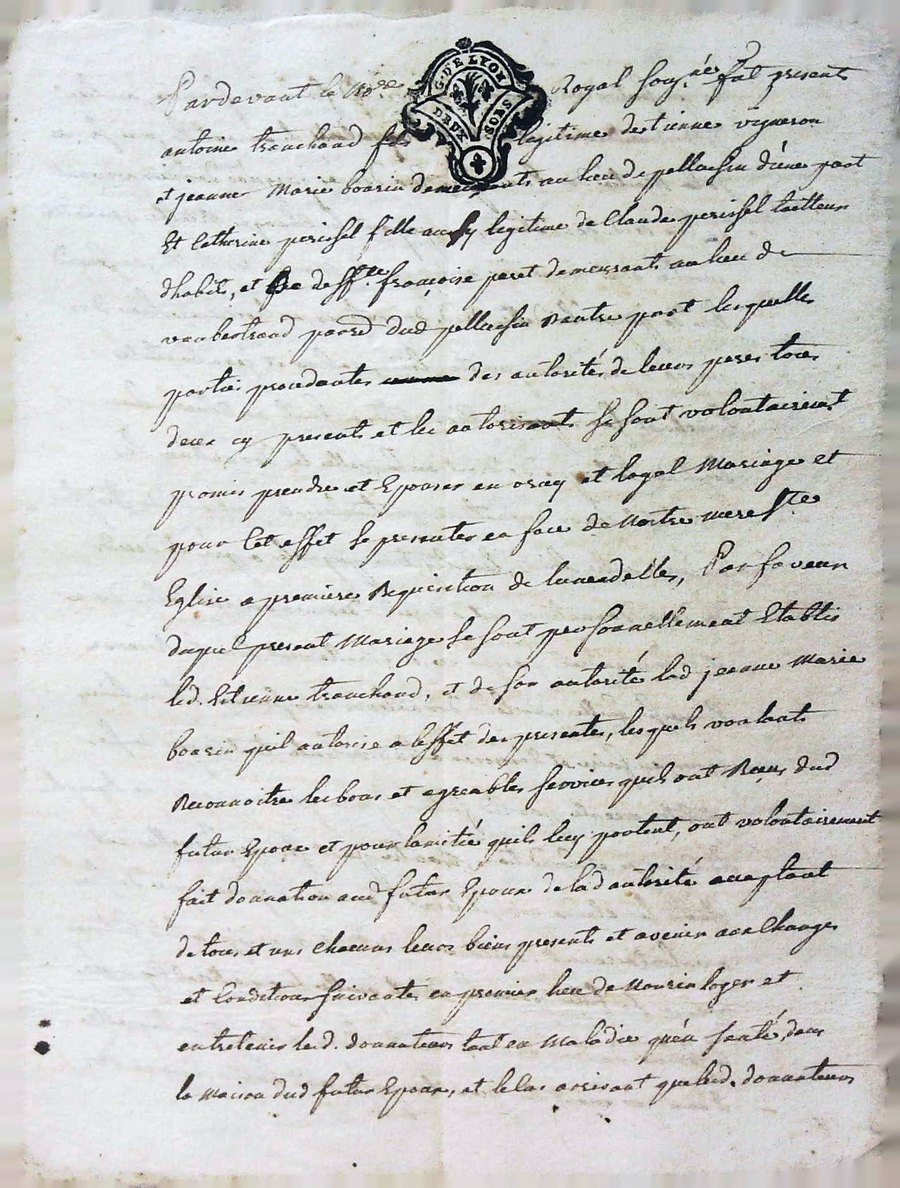 G. DE LYON
DEUX SOLS
Pardevant le No.re Royal soug.né fut presents
antoine tranchand fils legitime detienne vigneron
et jeanne Marie bourin demeurants au lieu de pellussin d'une part
Et Catherine perissel fille aussy legitime de Claude perissel tailleur
dhabits, et de deff.te françoise peret demeurants au lieu de
vaubertrand paroisse dud pellussin dautre part lesquelles
parties procedantes des autorités de leurs peres tous
deux cy presents et les autorisants se sont volontairement
promis prendre et Epouser en vray et loyal Mariage et
pour Cet effet se presenter en face de Nostre mere Ste
Eglise a premiere Requisition de lune delles, Par faveur
duquel present Mariage se sont personnellement Etablis
led. Etienne tranchand, et de son autorité lad jeanne Marie
bourin quil autorise a leffet des presentes, lesquels voulants
Reconnoitre les bons et agreables services quils ont Reçus dud
futur Epoux et pour lamitié quils luy portent, ont volontairement
fait donnation aud futur Epoux de lad autorité acceptant
de tous et uns chacuns leurs biens presents et avenir aux Charges
et Conditions suivantes en premier lieu de Nourrir loger et
entretenir lesd. donnateurs tant en Maladie qu'en santé, dans
la Maison dud futur Epoux, et le Cas arrivant que lesd. donnateurs